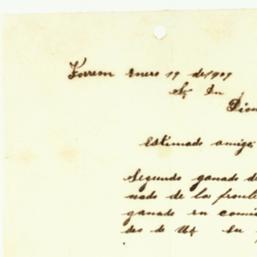 Torreon Enero 19 de 1909
Sr. Dn
Estimado amigo
Segundo ganado d
nado de la fronte
ganado en comi
des de Ud. Su